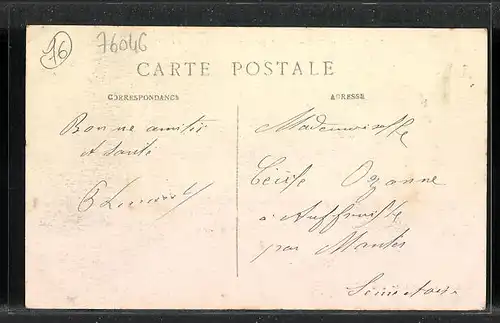 16
76046
CARTE POSTALE
CORRESPONDANCE
ADRESSE
Bonne amitié
et santé
Mademoiselle
Cécile Ozanne
à Auffreville
par Mantes
Seine et Oise